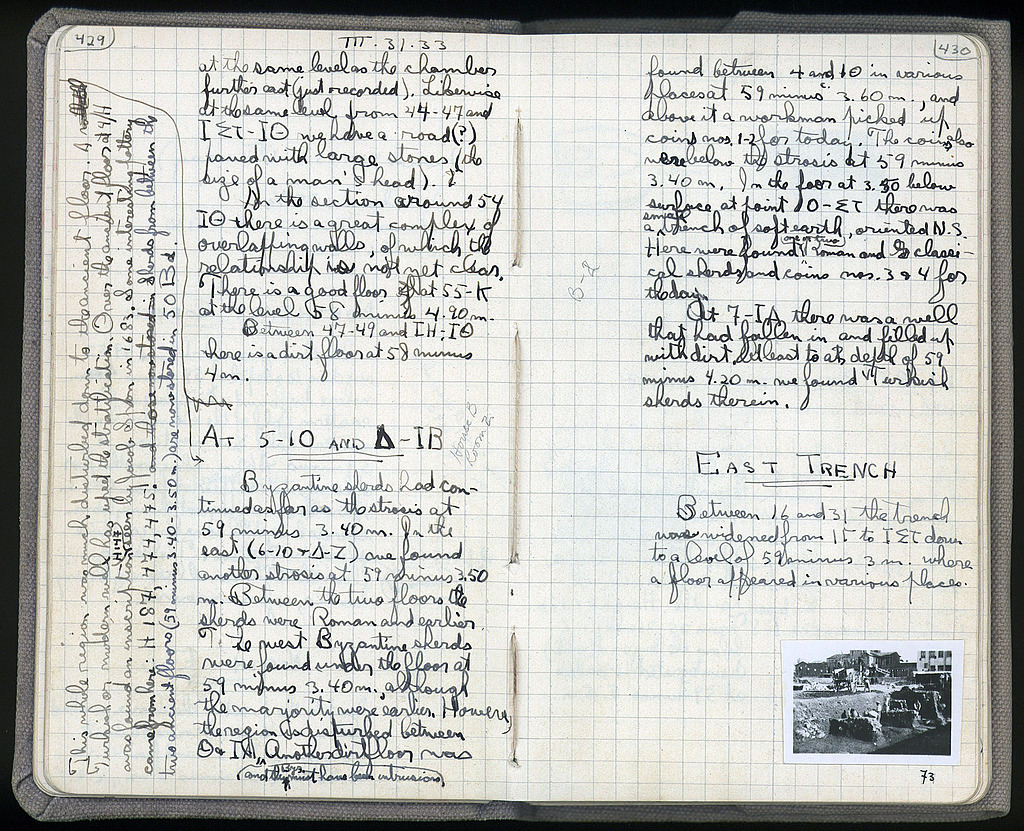 429
III.31.33
at the same level as the chamber
further east (just recorded). Likewise
at the same level, from 44-47 and
IΣΤ-ΙΘ we have a road(?)
paved with large stones (the
size of a man's head).
In the section around 54
ΙΘ there is a great complex of
overlapping walls, of which the
relationship is not yet clear.
There is a good floor at 55-K
at the level 58 minus 4.90 m.
Between 47-49 and ΙΗ-ΙΘ
there is a dirt floor at 58 minus
4 m.
AT 5-10 AND Δ-ΙΒ
House B
Room 2
Byzantine sherds had con-
tinued as far as the strosis at
59 minus 3.40 m. In the
east (6-10 + Δ-Ζ) we found
another strosis at 59 minus 3.50
m. Between the two floors the
sherds were Roman and earlier.
The next Byzantine sherds
were found under the floor at
59 minus 3.40 m. although
the majority were earlier. However,
the region is disturbed between
Θ + ΙΑ. Another dirt floor was
(and the Byz. must have been intrusions)
This whole region was much disturbed down to the ancient floor. A
Turkish or modern well has upset the stratification. Over the ancient floor at 9/IA
was found an inscription (H 147) seen by Jacob Spon in 1683. Some interesting pottery
came from here: H 187, 474, 475. and those now stored in sherds from between the
two ancient floors (59 minus 3.40-3.50 m.) are now stored in 50 Bd.
430
found between 4 and 10 in various
places at 59 minus 3.60 m., and
above it a workman picked up
coins nos. 1-2 for today. The coins also
were below the strosis at 59 minus
3.40 m. In the floor at 3.50 below
surface at point 10-ΣΤ there was
a small trench of soft earth, oriented N.S.
Here were found one or two Roman and classi-
cal sherds and coins nos. 3 & 4 for
the day.
At 7-ΙΑ there was a well
that had fallen in and filled up
with dirt. At least to a depth of 59
minus 4.20 m. we found Turkish
sherds therein.
EAST TRENCH
Between 16 and 31 the trench
was widened from ΙΓ to ΙΣΤ down
to a level of 59 minus 3 m. where
a floor appeared in various places.
73